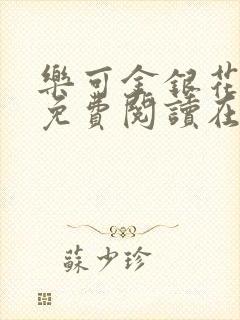 樂可金銀花
免費閱讀在
蘇少珍